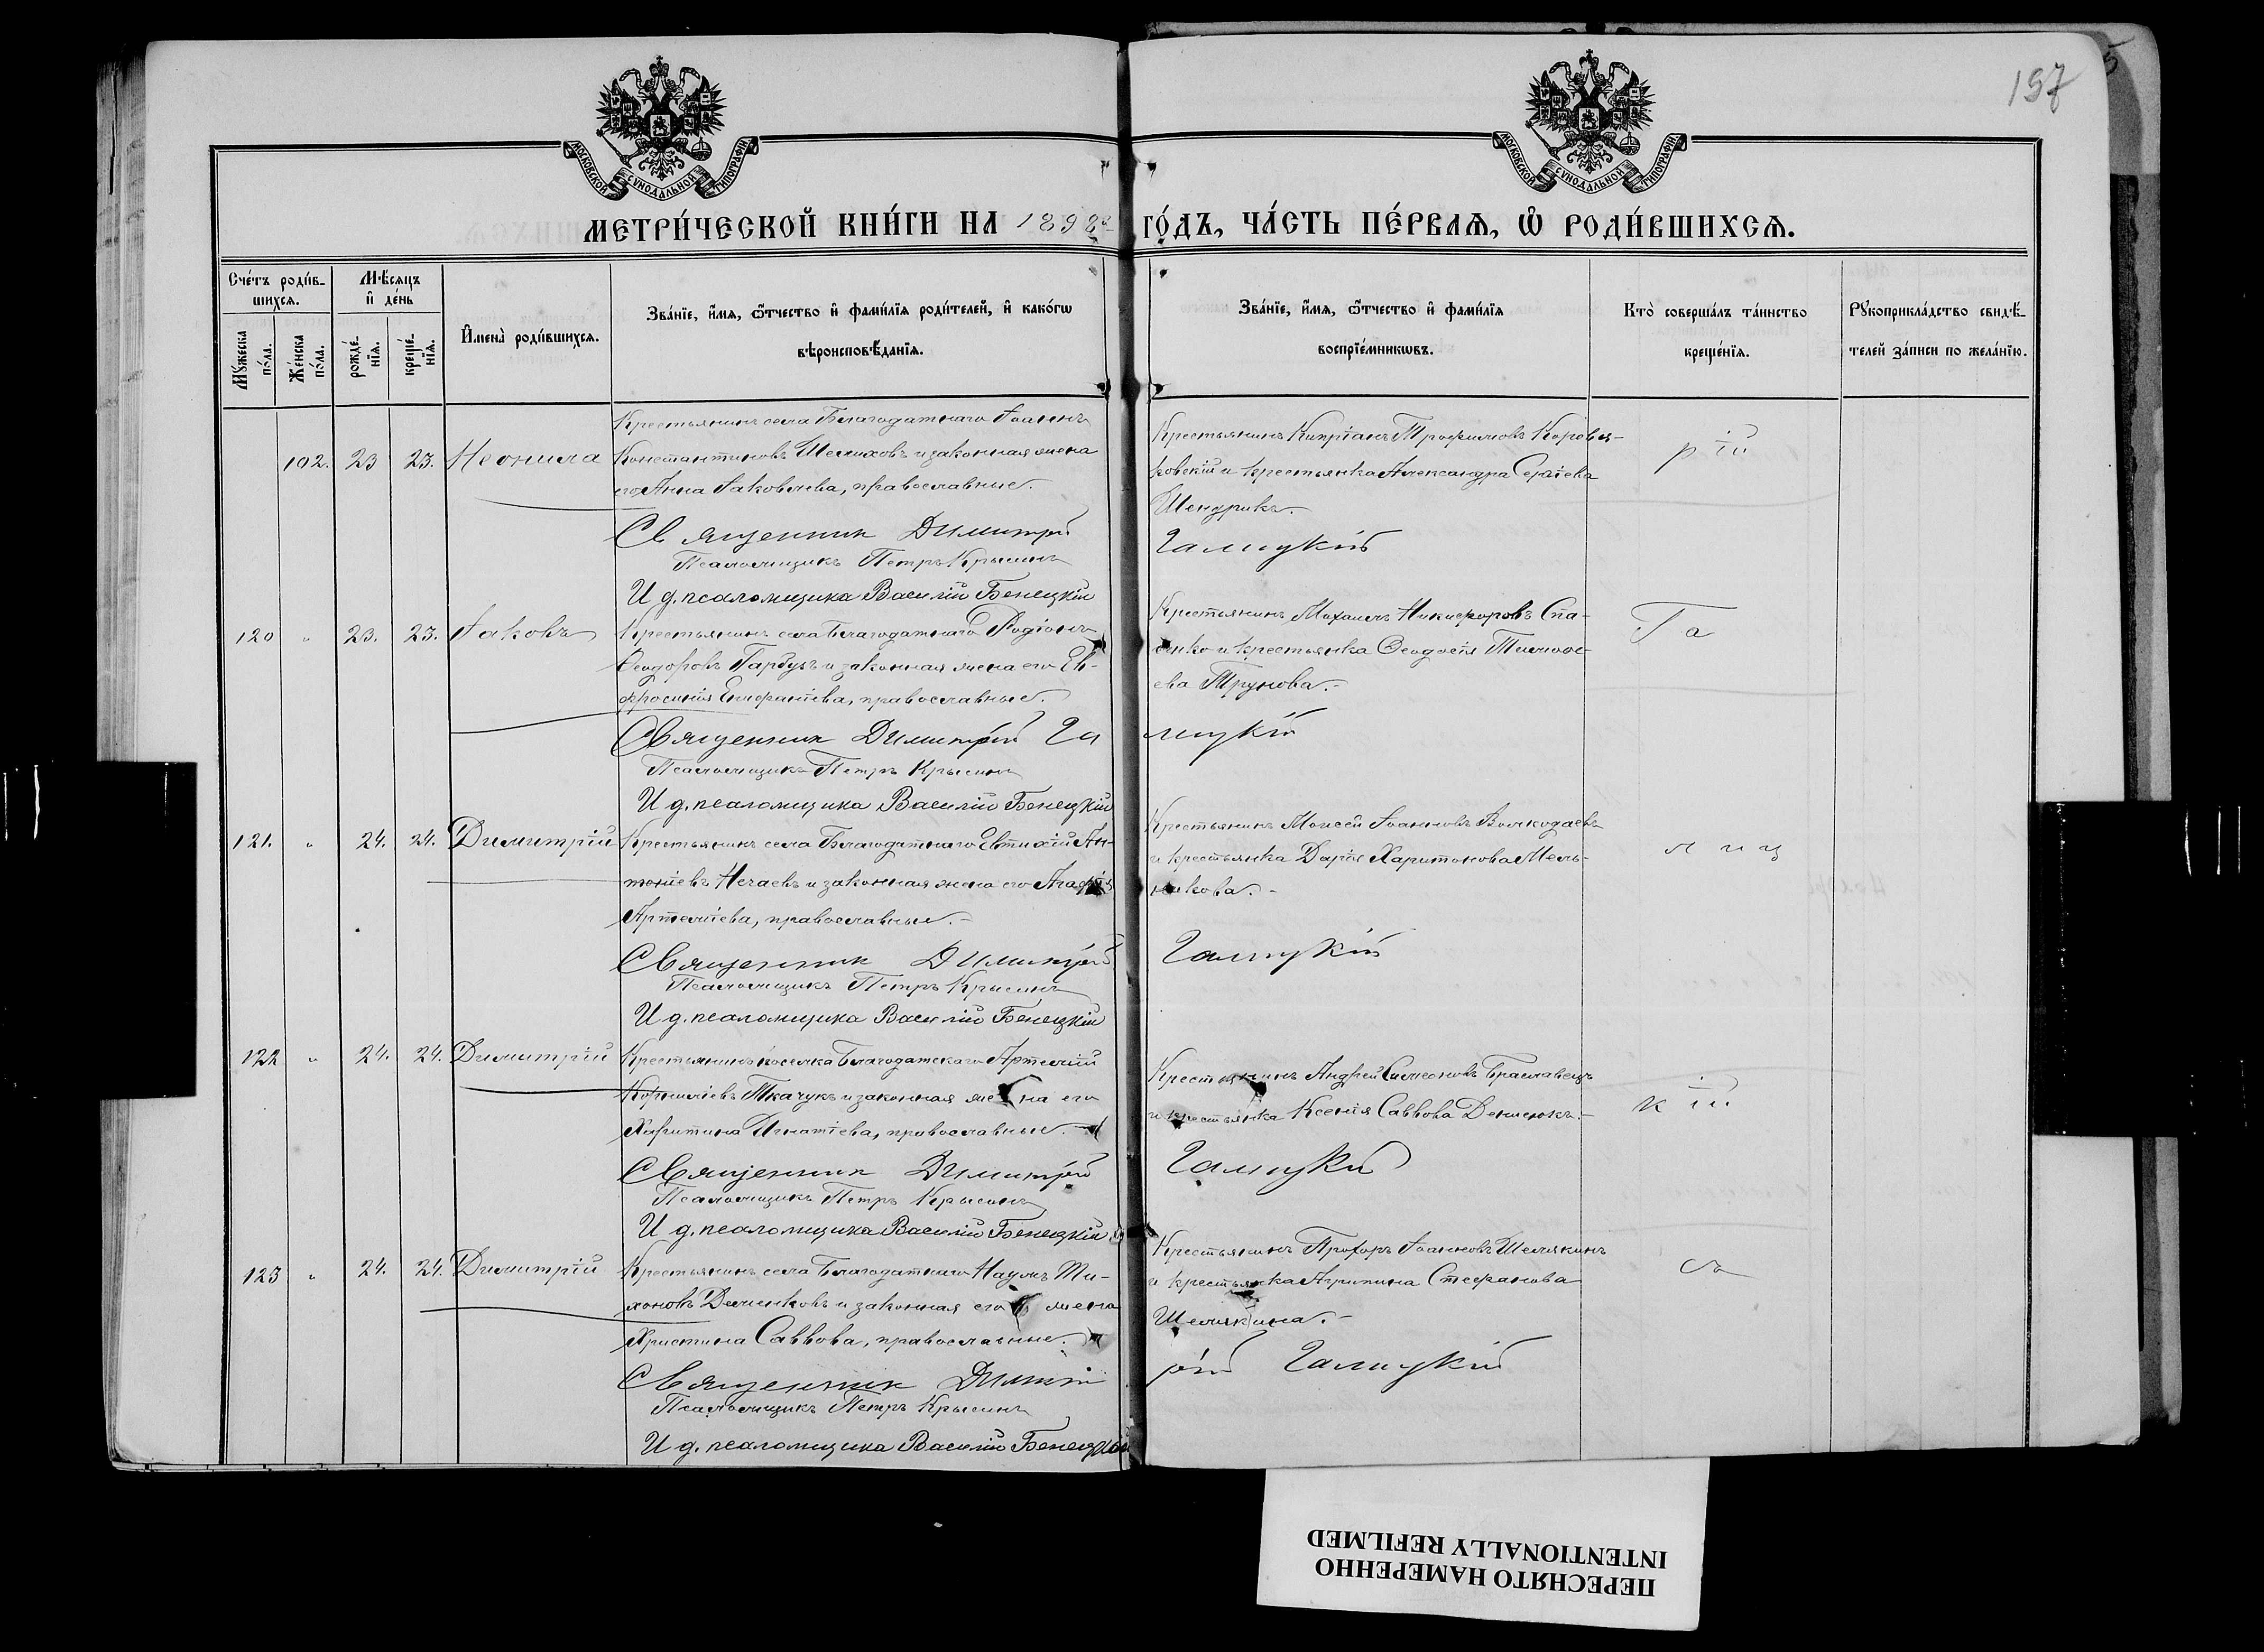 197
МОСКОВСКОЙ СѴНОДАЛЬНОЙ ТИПОГРАФІИ
МОСКОВСКОЙ СѴНОДАЛЬНОЙ ТИПОГРАФІИ
МЕТРИ́ЧЕСКОЙ КНИ́ГИ НА 1898 го́дъ, ЧА́СТЬ ПЕ́РВАѦ, Ѽ РОДИ́ВШИХСѦ.
Сче́тъ роди́в-
шихсѧ.
Мꙋ́жеска по́ла.
Же́нска по́ла.
Мѣ́сѧцъ
и҆ де́нь
рожде́-
нїѧ.
креще́-
нїѧ.
И҆мена̀ роди́вшихсѧ.
Зва́нїе, и҆́мѧ, ѻ҆́тчество и҆ фами́лїѧ роди́телей, и҆ како́гѡ
вѣроисповѣ́данїѧ.
Зва́нїе, и҆́мѧ, ѻ҆́тчество и҆ фами́лїѧ
воспрїе́мникѡвъ.
Кто̀ соверша́лъ та́инство
креще́нїѧ.
Рꙋкоприкла́дство свидѣ́-
телей за́писи по жела́нїю.
102. 23 23. Неонила
Крестьянинъ села Благодатнаго Іоаннъ
Константиновъ Шелиховъ и законная жена
его Анна Іаковлева, православные.
Крестьянинъ Кипріанъ Трофимовъ Коровя-
ковскій и крестьянка Александра Сергіева
Шендрикъ.
рій
Священник Димитрій Галицкій
Псаломщикъ Петръ Крысинъ
И д. псаломщика Василій Бенецкій
120 " 23. 23. Іаковъ
Крестьянинъ села Благодатнаго Родіонъ
Ѳеодоровъ Гарбузъ и законная жена его Ев-
фросинія Епифаніева, православные.
Крестьянинъ Михаилъ Никифоровъ Спа-
сенко и крестьянка Ѳеодосія Тимоѳе-
ева Трунова.
Га
Священник Димитрій Галицкій
Псаломщикъ Петръ Крысинъ
И д. псаломщика Василій Бенецкій
121. " 24. 24. Димитрій
Крестьянинъ села Благодатнаго Евтихій Ан-
тоніевъ Нечаевъ и законная жена его Агафія
Артеміева, православные.
Крестьянинъ Моисей Іоанновъ Волкодаевъ
и крестьянка Дарія Харитонова Мель-
никова.
лиц
Священник Димитрій Галицкій
Псаломщикъ Петръ Крысинъ
И д. псаломщика Василій Бенецкій
122 " 24. 24. Димитрій
Крестьянинъ поселка Благодатскаго Артемій
Корниліевъ Ткачукъ и законная жена его
Харитина Игнатіева, православные.
Крестьянинъ Андрей Симеоновъ Браславецъ
и крестьянка Ксенія Саввова Денисюкъ.
кій
Священник Димитрій Галицкій
Псаломщикъ Петръ Крысинъ
И д. псаломщика Василій Бенецкій
123 " 24. 24. Димитрій
Крестьянинъ села Благодатнаго Наумъ Ти-
хоновъ Деменковъ и законная его жена
Христина Саввова, православные.
Крестьянинъ Прохоръ Іоанновъ Шелякинъ
и крестьянка Агрипина Стефанова
Шелякина.
Священник Димитрій Галицкій
Псаломщикъ Петръ Крысинъ
И д. псаломщика Василій Бенецкій
ПЕРЕСНЯТО НАМЕРЕННО
INTENTIONALLY REFILMED